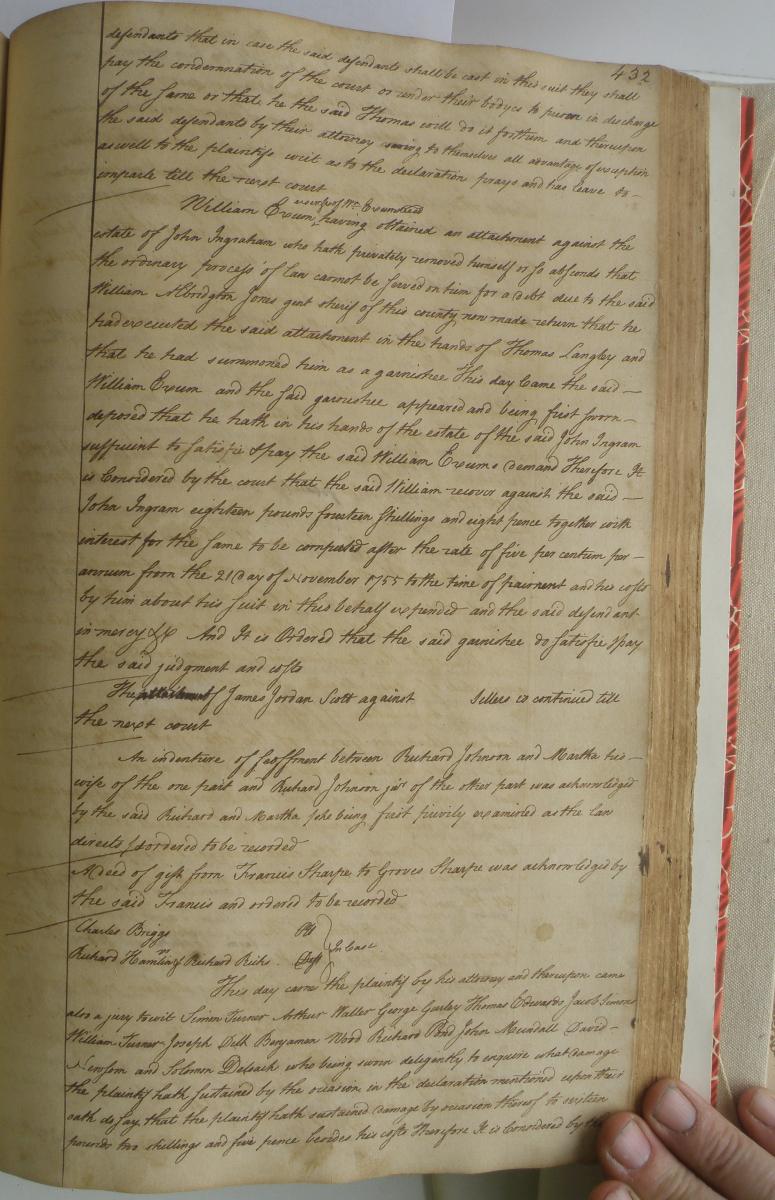 432
defendants that in case the said defendants shall be cast in this suit they shall
pay the condemnation of the court or render their bodyes to prison in discharge
of the same or that he the said Thomas will do it for them and thereupon
the said defendants by their attorney saving to themselves all advantage of exception
aswell to the plaintifs writ as to the declaration prays and has leave to
imparle till the next court
exec of Wm Exum decd
William Exum, having obtained an attachment against the
estate of John Ingraham who hath privately removed himself or so absconds that
the ordinary process of law cannot be served on him for a debt due to the said
William Abridgton Jones gent sherif of this county now made return that he
had executed the said attachment in the hands of Thomas Langley and
that he had summoned him as a garnishee This day Came the said
William Exum and the said garnishee appeared and being first sworn
deposed that he hath in his hands of the estate of the said John Ingram
suffitient to satisfie & pay the said William Exums demand Therefore It
is Considered by the court that the said William recover against the said
John Ingram eighteen pounds fourteen shillings and eight pence together with
interest for the same to be computed after the rate of five per centum per
annum from the 21 day of November 1755 to the time of paiment and his costs
by him about his suit in this behalf expended and the said defendant
in mercy &c And It is Ordered that the said garnishee do satisfie & pay
the said judgment and costs
The of James Jordan Scott against Sellers is continued till
the next court
An indenture of feoffment between Richard Johnson and Martha his
wife of the one part and Richard Johnson jur of the other part was acknowledged
by the said Richard and Martha she being first privily examined as the law
directs & ordered to be recorded
A deed of gift from Francis Sharpe to Groves Sharpe was acknowledged by
the said Francis and ordered to be recorded
Charles Briggs Plt
In Case
Richard Hamlin & Richard Ricks Deft
This day came the plaintif by his attorney and thereupon came
also a jury to wit Simon Turner Arthur Waller George Gurley Thomas Edwards Jacob Simons
William Turner Joseph Delk Benjamen Wood Richard Pond John Mundall David
Newsom and Solomon Deloach who being sworn delegently to enquire what damage
the plaintif hath sustained by the occasion in the declaration mentioned upon their
oath do say that the plaintif hath sustained damage by occasion thereof to sixteen
pounds two shillings and five pence besides his costs Therefore It is Considered by